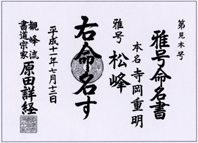 第見本号
雅号命名書
本名 寺岡重明
雅号 松峰
右命名す
平成十一年七月十三日
観峰流
書道宗家 原田詳経